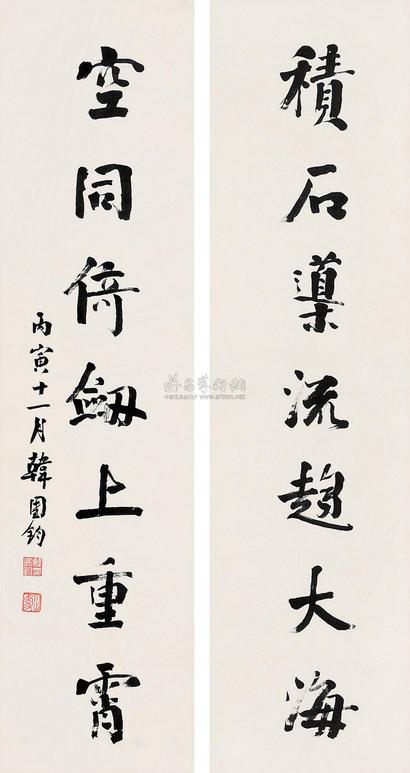 積石導流趨大海
空同倚劒上重霄
丙寅十一月韓國鈞
www.artron.net